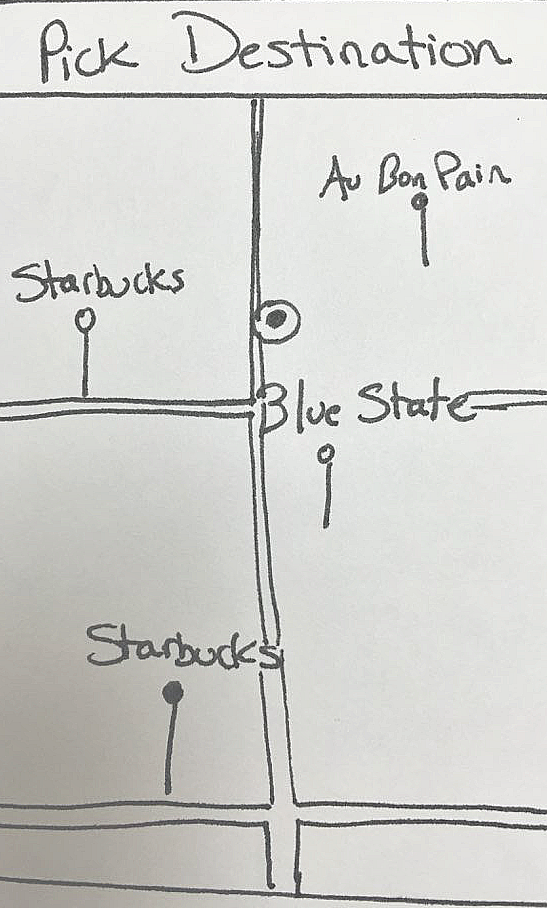 Pick Destination
Au Bon Pain
Starbucks
Blue State
Starbucks